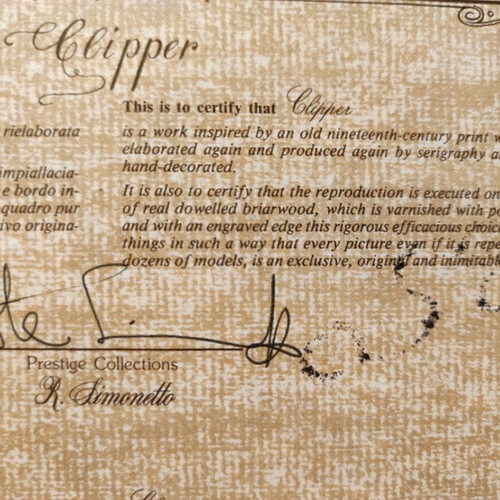 Clipper
This is to certify that Clipper
rielaborata
is a work inspired by an old nineteenth-century print
elaborated again and produced again by serigraphy
impiallacia-
hand-decorated.
e bordo in-
It is also to certify that the reproduction is executed on
quadro pur
of real dowelled briarwood, which is varnished with
ivo origina-
and with an engraved edge this rigorous efficacious choic
things in such a way that every picture even if it is repe
dozens of models, is an exclusive, original and inimitab
Prestige Collections
R. Simonetto